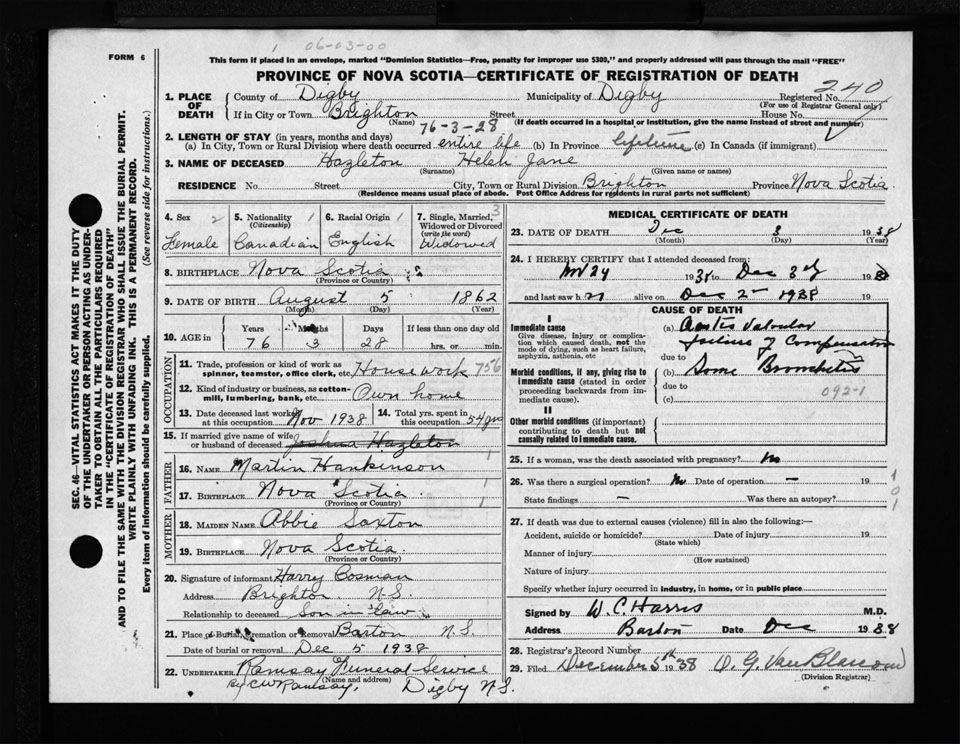 06-03-00
FORM 6
This form if placed in an envelope, marked "Dominion Statistics—Free, penalty for improper use $300," and properly addressed will pass through the mail "FREE"
PROVINCE OF NOVA SCOTIA—CERTIFICATE OF REGISTRATION OF DEATH
1. PLACE OF DEATH
County of Digby Municipality of Digby Registered No. 240
(For use of Registrar General only)
If in City or Town Brighton Street House No.
(Name) 76-3-28 (If death occurred in a hospital or institution, give the name instead of street and number)
2. LENGTH OF STAY (in years, months and days)
(a) In City, Town or Rural Division where death occurred entire life (b) In Province lifetime (c) In Canada (if immigrant)
3. NAME OF DECEASED Hazleton Helen Jane
(Surname) (Given name or names)
RESIDENCE No. Street City, Town or Rural Division Brighton Province Nova Scotia
(Residence means usual place of abode. Post Office Address for residents in rural parts not sufficient)
SEC. 46—VITAL STATISTICS ACT MAKES IT THE DUTY
OF THE UNDERTAKER OR PERSON ACTING AS UNDER-
TAKER TO OBTAIN ALL THE PARTICULARS REQUIRED
IN THE "CERTIFICATE OF REGISTRATION OF DEATH"
AND TO FILE THE SAME WITH THE DIVISION REGISTRAR WHO SHALL ISSUE THE BURIAL PERMIT.
WRITE PLAINLY WITH UNFADING INK. THIS IS A PERMANENT RECORD.
Every item of information should be carefully supplied. (See reverse side for instructions.)
4. Sex 2
Female
5. Nationality 1
(Citizenship)
Canadian
6. Racial Origin 1
English
7. Single, Married, 3
Widowed or Divorced
(write the word)
Widowed
8. BIRTHPLACE Nova Scotia
(Province or Country)
9. DATE OF BIRTH August 5 1862
(Month) (Day) (Year)
10. AGE in
Years Months Days If less than one day old
76 3 28 hrs. or min.
OCCUPATION
11. Trade, profession or kind of work as
spinner, teamster, office clerk, etc. Housework 756
12. Kind of industry or business, as cotton-
mill, lumbering, bank, etc. Own home
13. Date deceased last worked
at this occupation Nov 1938
14. Total yrs. spent in
this occupation 54 yrs
15. If married give name of wife
or husband of deceased Joshua Hazleton
FATHER
16. NAME Martin Hankinson
17. BIRTHPLACE Nova Scotia
(Province or Country)
MOTHER
18. MAIDEN NAME Abbie Saxton
19. BIRTHPLACE Nova Scotia
(Province or Country)
20. Signature of informant Harry Cosman
Address Brighton N.S.
Relationship to deceased Son in law
21. Place of Burial, Cremation or Removal Barton N.S.
Date of burial or removal Dec 5 1938
22. UNDERTAKER Ramsay Funeral Service
(Name and address)
By C.W. Ramsay. Digby N.S.
MEDICAL CERTIFICATE OF DEATH
23. DATE OF DEATH Dec 3 1938
(Month) (Day) (Year)
24. I HEREBY CERTIFY that I attended deceased from:
Nov 24 1938 to Dec 3rd 1938
and last saw h alive on Dec 2 1938 19
CAUSE OF DEATH
I
Immediate cause
Give disease, injury or complica-
tion which caused death, not the
mode of dying, such as heart failure,
asphyxia, asthenia, etc
(a) Aortic Valvular
failure of Compensation
due to
Morbid conditions, if any, giving rise to
immediate cause (stated in order
proceeding backwards from im-
mediate cause).
(b) Some Bronchitis
due to
092-1
(c)
II
Other morbid conditions (if important)
contributing to death but not
causally related to immediate cause.
25. If a woman, was the death associated with pregnancy? No
26. Was there a surgical operation? No Date of operation — 19
State findings — Was there an autopsy?
1
0
1
27. If death was due to external causes (violence) fill in also the following:—
Accident, suicide or homicide? Date of injury 19
(State which)
Manner of injury
(How sustained)
Nature of injury
Specify whether injury occurred in industry, in home, or in public place
Signed by W. C. Harris M.D.
Address Barton Date Dec 1938
28. Registrar's Record Number
29. Filed December 5th 1938
(Division Registrar)